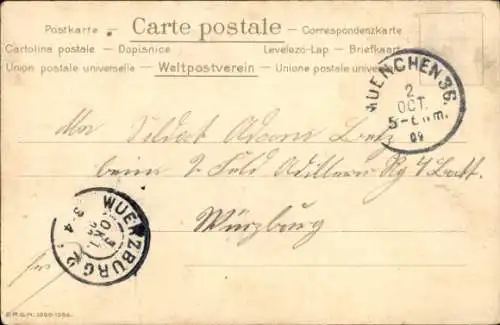 Postkarte — Carte postale — Correspondenzkarte
Cartolina postale — Dopisnice Levelező-Lap — Briefkaart
Union postale universelle — Weltpostverein — Unione postale universale
MUENCHEN 36.
2
OCT.
5-6 Nm.
09
Soldat Adam
beim 2. Feld Artillerie Rg 4 Batt.
Würzburg
WUERZBURG 2
OKT.